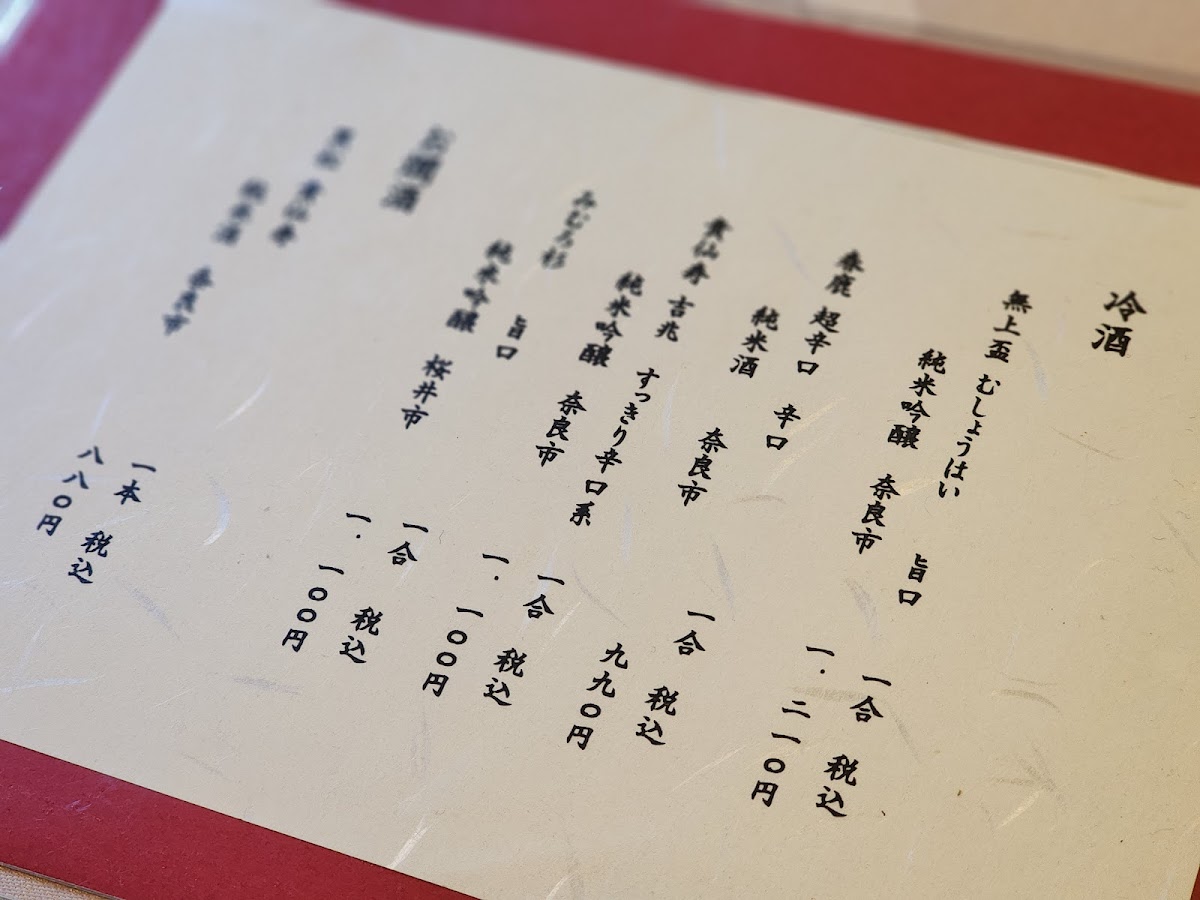 冷酒
無上盃 むしょうはい 旨口
純米吟醸 奈良市
一合 税込
一.二一〇円
春鹿 超辛口 辛口
純米酒 奈良市
一合 税込
九九〇円
貴仙寿 吉兆 すっきり辛口系
純米吟醸 奈良市
一合 税込
一.一〇〇円
みむろ杉 旨口
純米吟醸 桜井市
一合 税込
一.一〇〇円
お燗酒
貴仙寿
純米酒 奈良市
一本 税込
八八〇円